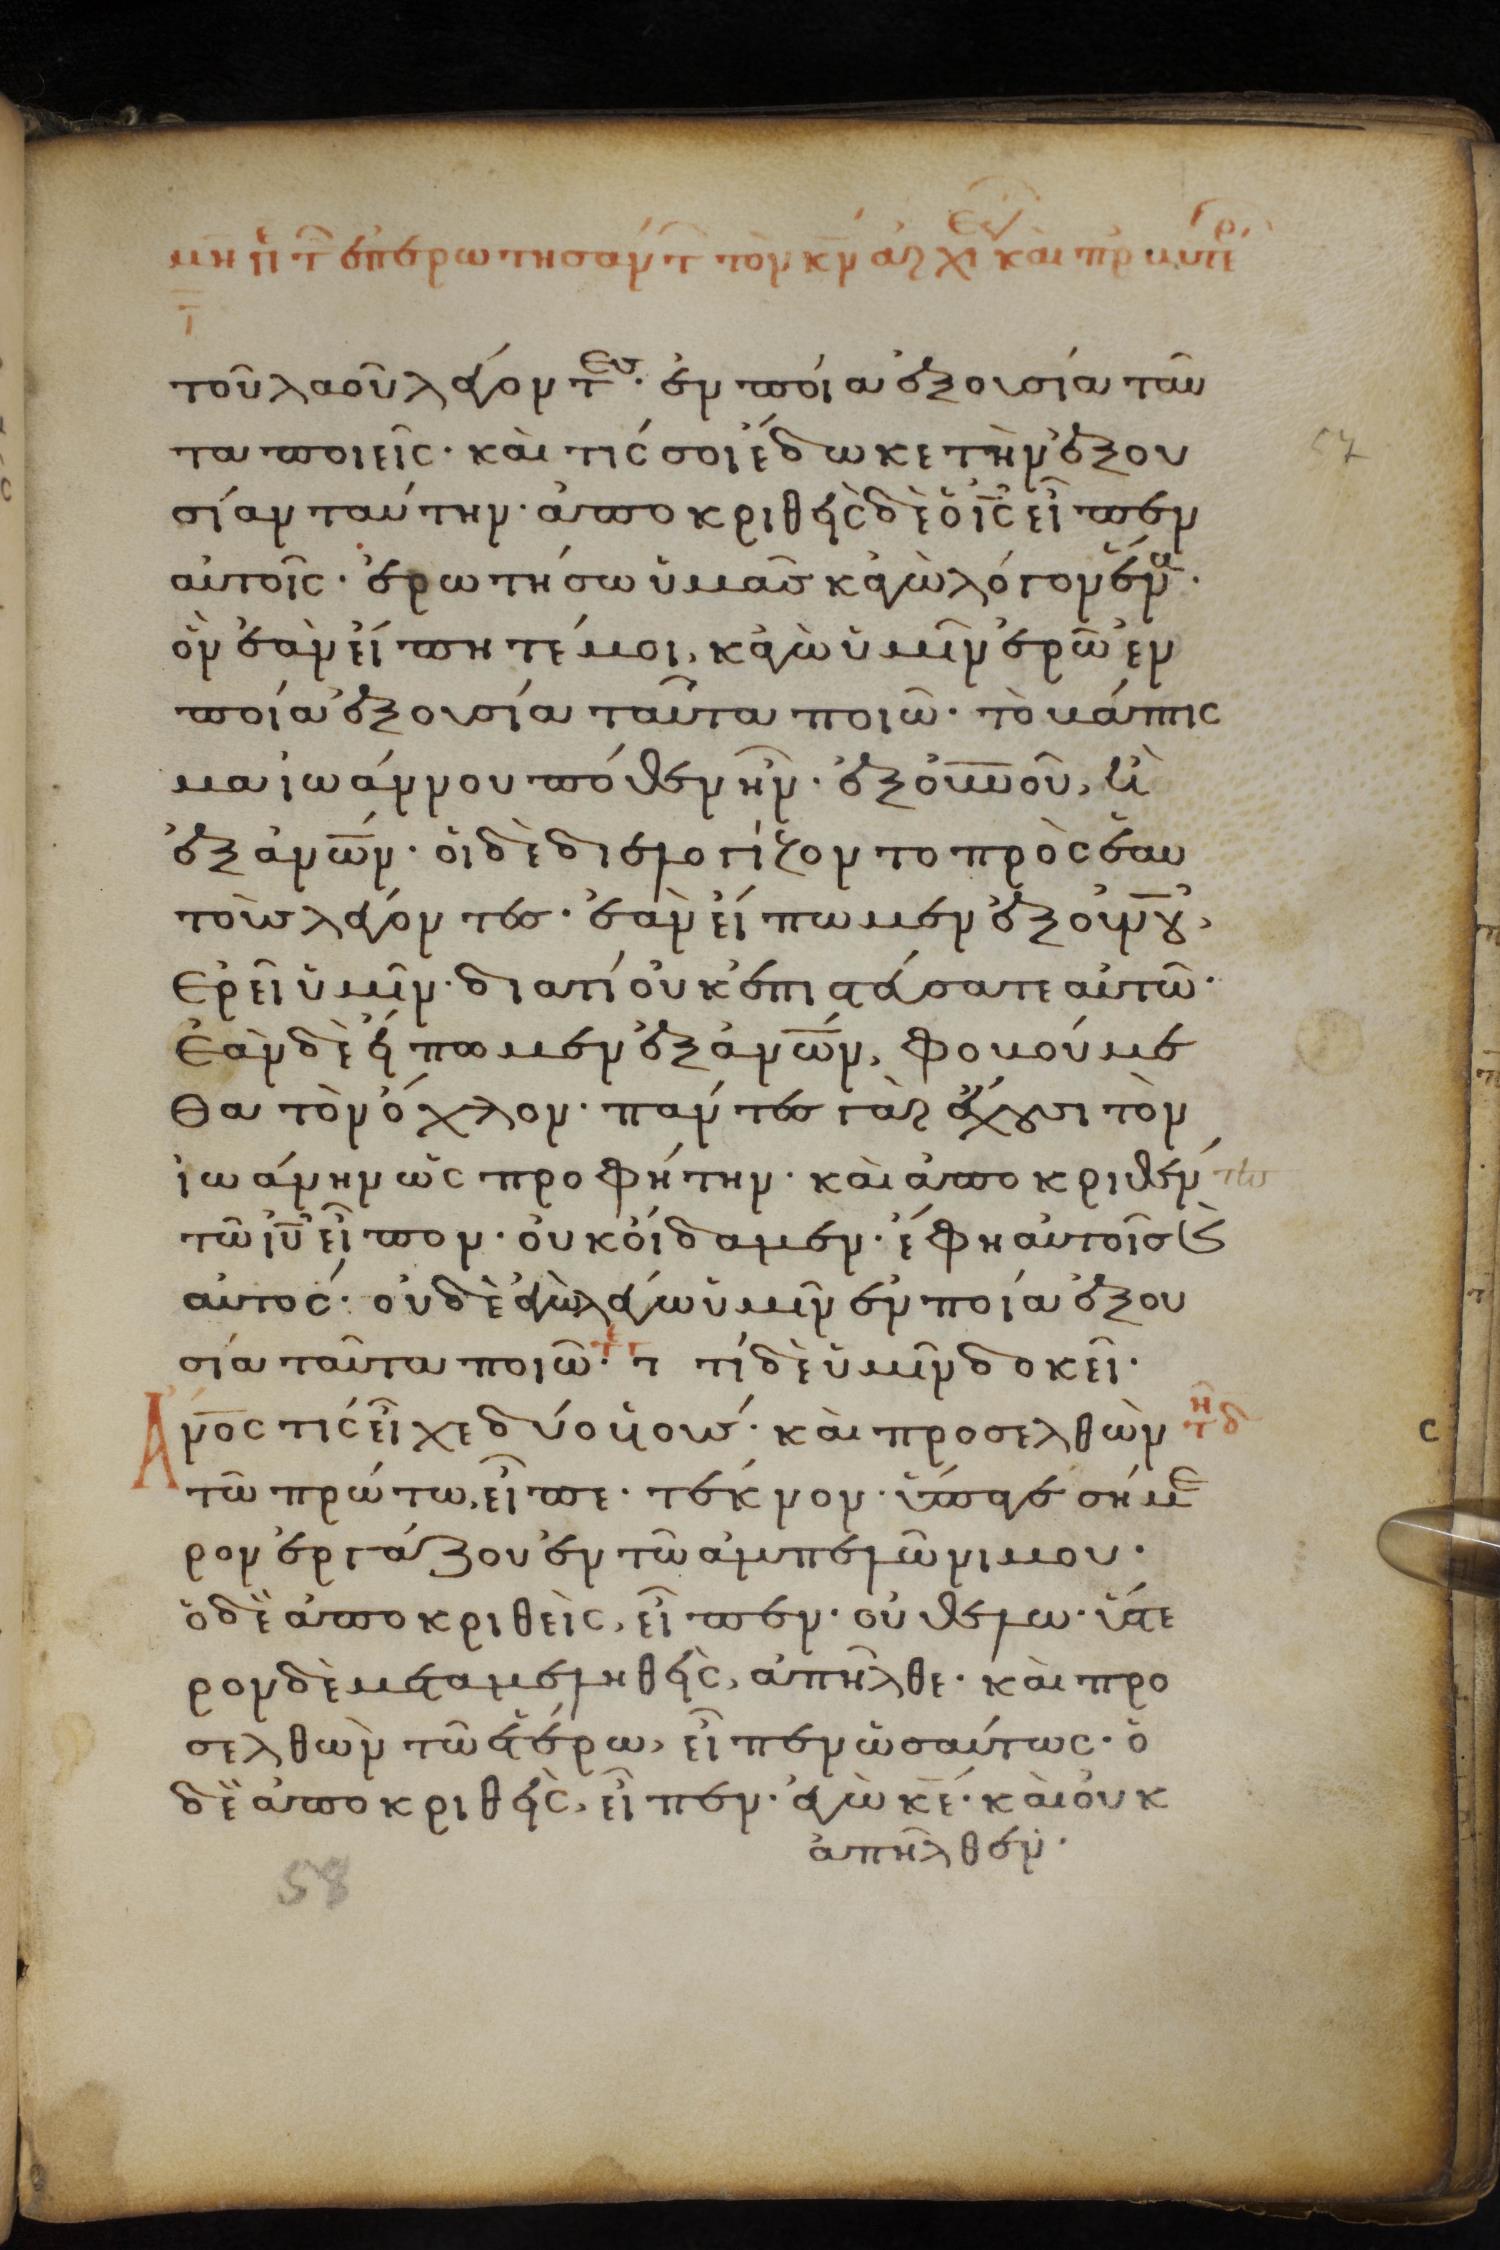 μη π τ επερωτησαντ τὸν κν αρχι και πρ
τοῦ λαοῦ λέγοντες· ἐν ποία ἐξουσία ταῦ
τα ποιεῖς· καὶ τίς σοι ἔδωκε τὴν ἐξου
σίαν ταύτην· ἀποκριθεὶς δὲ ὁ ις εἶπεν
αὐτοῖς· ἐρωτήσω ὑμᾶς κἀγὼ λόγον ἕνα·
ὃν ἐὰν εἴπητέ μοι, κἀγὼ ὑμῖν ἐρῶ ἐν
ποία ἐξουσία ταῦτα ποιῶ· τὸ βάπτισ
μα ἰωάννου πόθεν ἦν· ἐξ οὐνου, ἢ
ἐξ ἀνων· οἱ δὲ διελογίζοντο πρὸς ἑαυ
τοὺς λέγοντες· ἐὰν εἴπωμεν ἐξ οὐνου,
ἐρεῖ ὑμῖν· διατί οὐκ ἐπιστεύσατε αὐτῶ·
ἐὰν δὲ εἴπωμεν ἐξ ἀνων, φοβούμε
θα τὸν ὄχλον· πάντες γὰρ ἔχουσι τὸν
ἰωάννην ὡς προφήτην· καὶ ἀποκριθέντες
τῶ ιυ εἶπον· οὐκ οἴδαμεν· ἔφη αὐτοῖς καὶ
αὐτός· οὐδὲ ἐγὼ λέγω ὑμῖν ἐν ποία ἐξου
σία ταῦτα ποιῶ· τ τί δὲ ὑμῖν δοκεῖ·
Ἄνος τίς εἶχε δύο υἱούς· καὶ προσελθὼν
τῶ πρώτω, εἶπε· τέκνον· ὕπαγε σήμε
ρον ἐργάζου ἐν τῶ ἀμπελῶνι μου·
ὁ δὲ ἀποκριθεὶς, εἶπεν· οὐ θέλω· ὕστε
ρον δὲ μεταμεληθεὶς, ἀπῆλθε· καὶ προ
σελθὼν τῶ ἑτέρω, εἶπεν ὡσαύτως· ὁ
δὲ ἀποκριθεὶς, εἶπεν· ἐγὼ κε· καὶ οὐκ
ἀπῆλθεν·
58